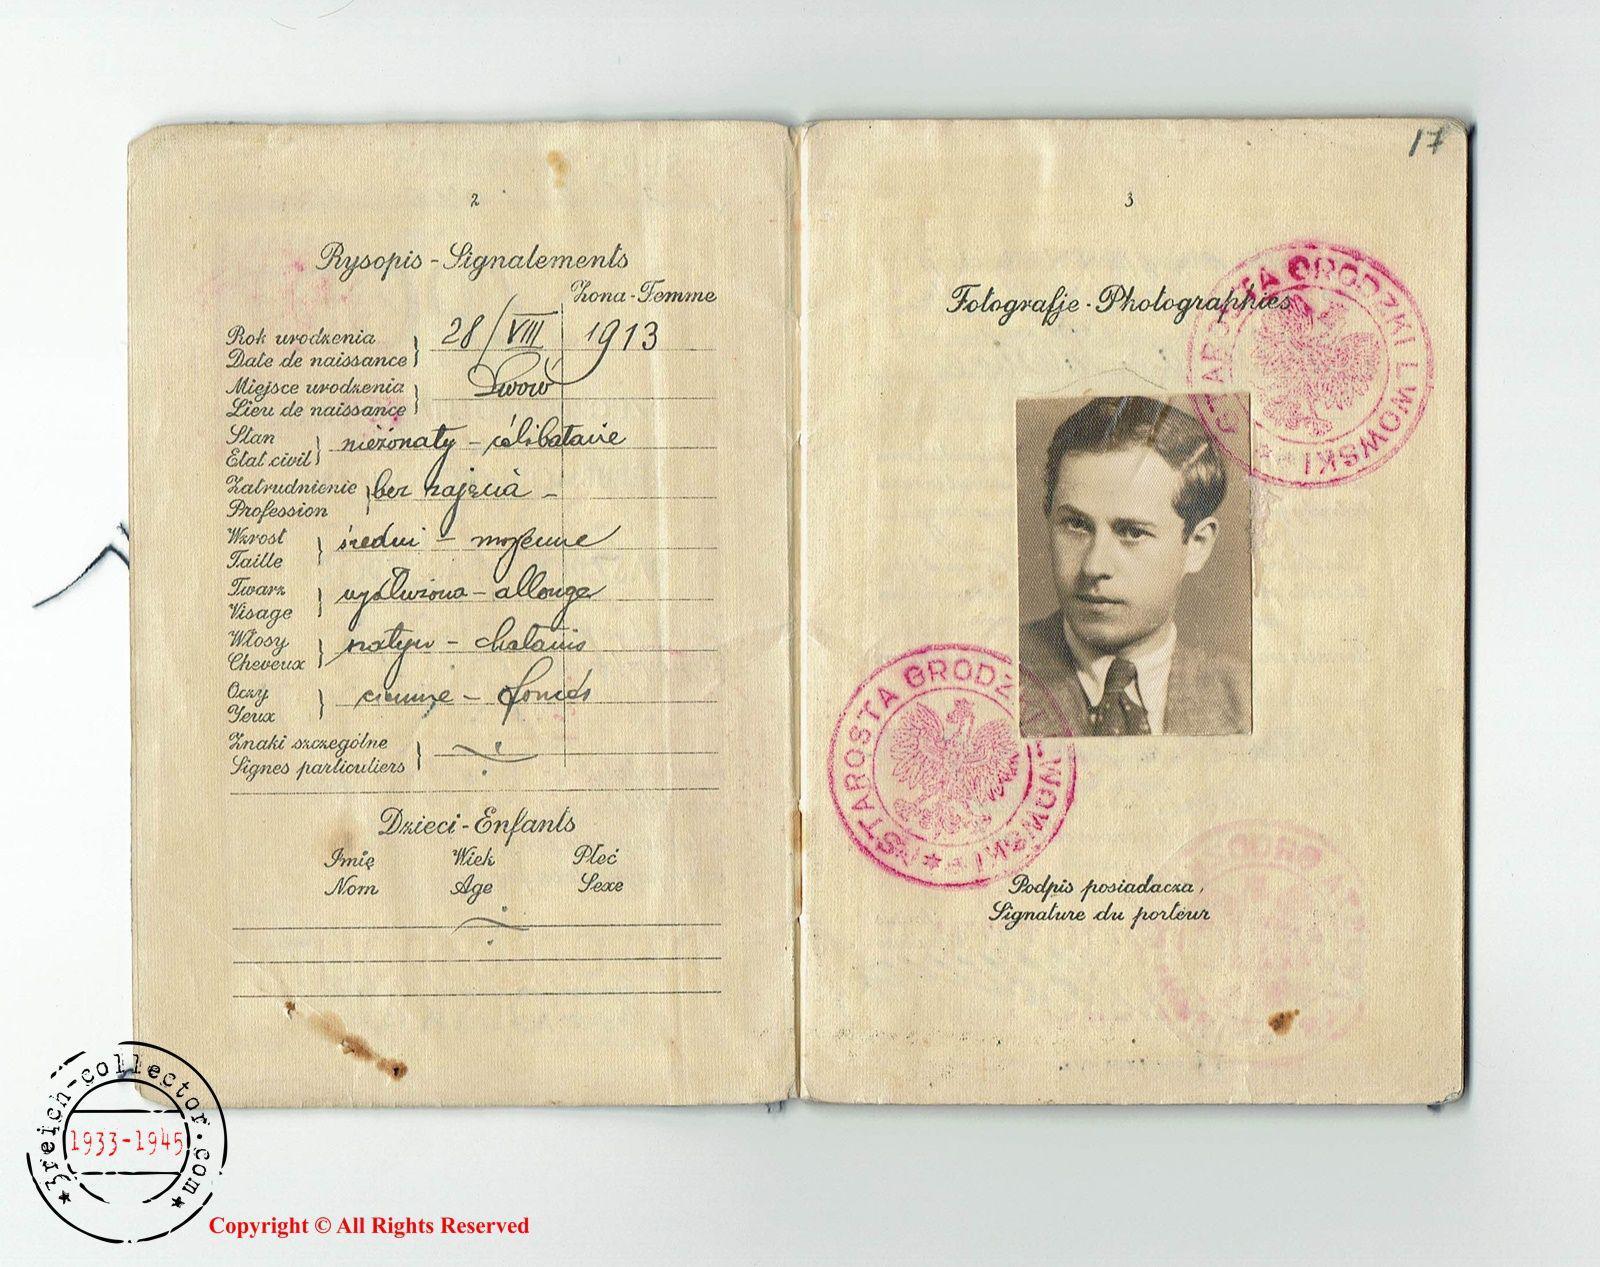 2
Rysopis - Signalements
Żona - Femme
Rok urodzenia
Date de naissance
28/VIII 1913
Miejsce urodzenia
Lieu de naissance
Lwów
Stan
Etat civil
nieżonaty - célibataire
Zatrudnienie
Profession
bez zajęcia -
Wzrost
Taille
średni - moyenne
Twarz
Visage
wydłużona - allongé
Włosy
Cheveux
szatyn - chatains
Oczy
Yeux
ciemne - foncés
Znaki szczególne
Signes particuliers
Dzieci - Enfants
Imię Wiek Płeć
Nom Age Sexe
17
3
Fotografje - Photographies
STAROSTA GRODZKI LWOWSKI
STAROSTA GRODZKI LWOWSKI
Podpis posiadacza,
Signature du porteur
3reich-collector.com
1933-1945
Copyright © All Rights Reserved